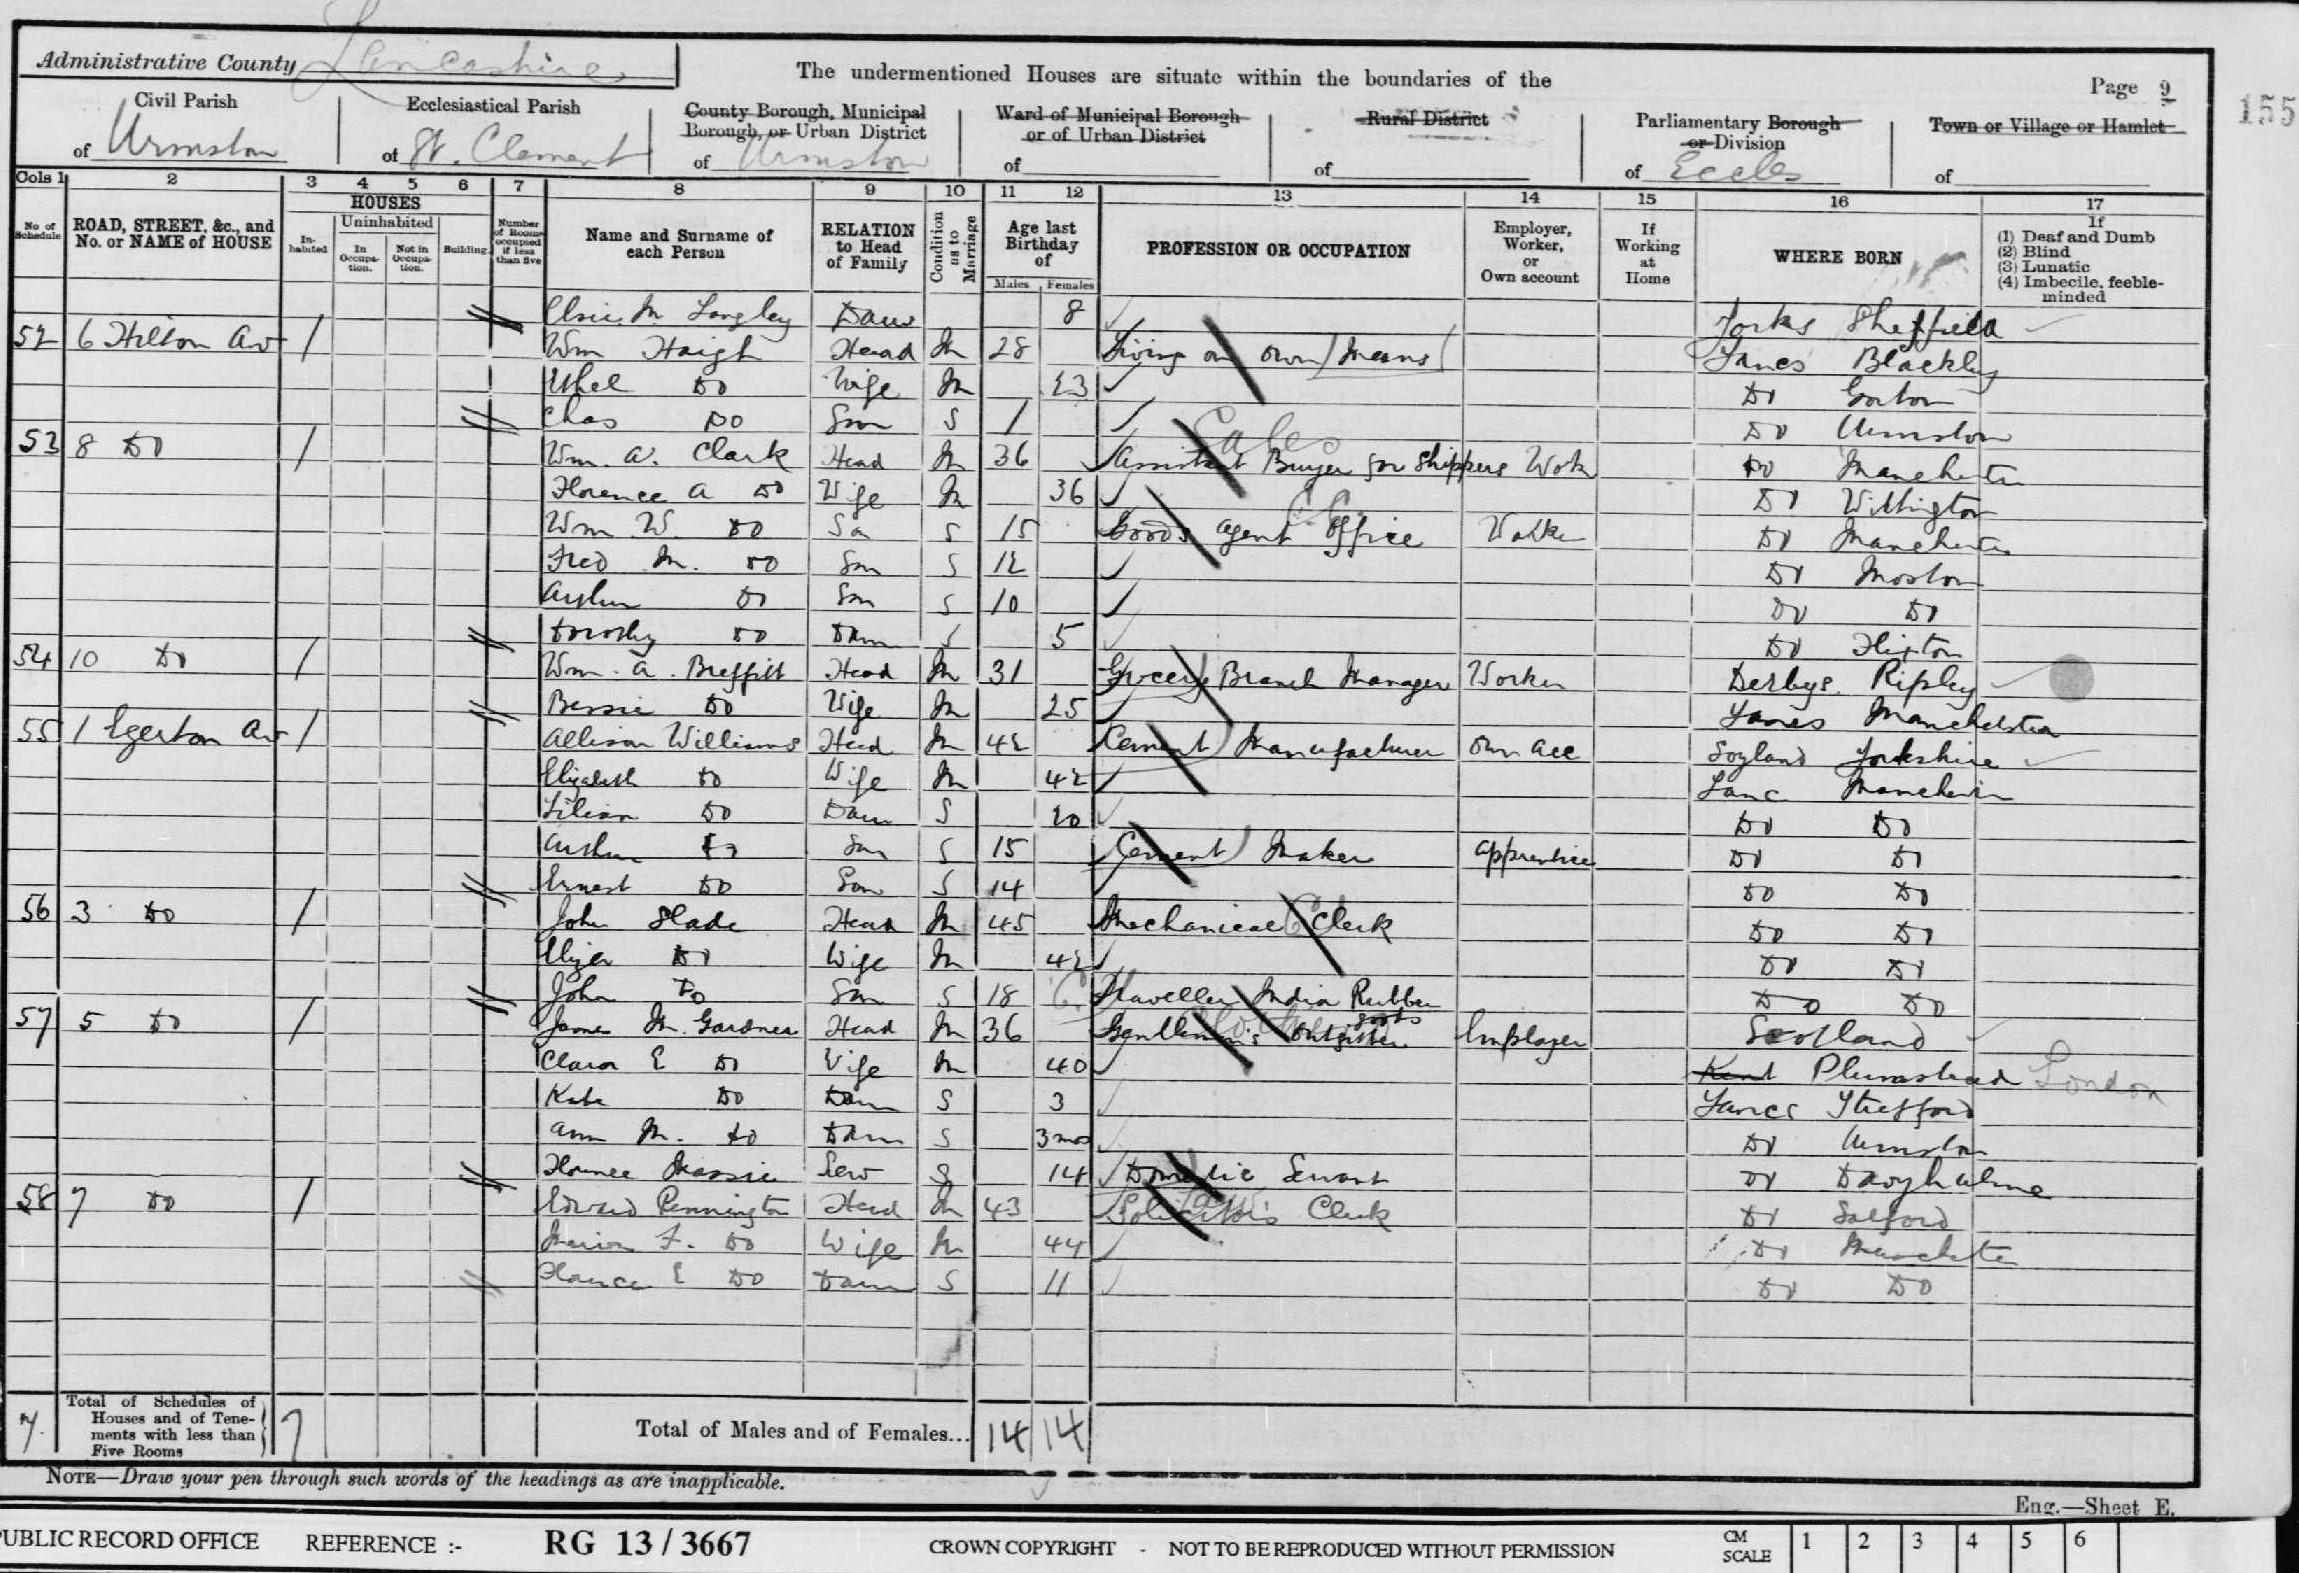 Administrative County Lancashire
The undermentioned Houses are situate within the boundaries of the
Page 9
155
Civil Parish of Urmston
Ecclesiastical Parish of St. Clement
County Borough, Municipal Borough, or Urban District of Urmston
Ward of Municipal Borough or of Urban District of
Rural District of
Parliamentary Borough or Division of Eccles
Town or Village or Hamlet of
Cols 1 2 3 4 5 6 7 8 9 10 11 12 13 14 15 16 17
No of Schedule
ROAD, STREET, &c., and No. or NAME of HOUSE
HOUSES
Inhabited
Uninhabited
In Occupation.
Not in Occupation.
Building
Number of Rooms occupied if less than five
Name and Surname of each Person
RELATION to Head of Family
Condition as to Marriage
Age last Birthday of
Males Females
PROFESSION OR OCCUPATION
Employer, Worker, or Own account
If Working at Home
WHERE BORN
If
(1) Deaf and Dumb
(2) Blind
(3) Lunatic
(4) Imbecile, feeble-minded
Elsie M Langley Daur 8 Yorks Sheffield
52 6 Hilton Av 1 Wm Haigh Head M 28 Living on own Means Lancs Blackley
Ethel Do Wife M 23 Do Gorton
Chas Do Son S 1 Do Urmston
Sales
53 8 Do 1 Wm. A. Clark Head M 36 Assistant Buyer for Shippers Work Do Manchester
Florence A Do Wife M 36 Do Withington
Wm. W. Do So S 15 Goods Agent Office Worker Do Manchester
Fred M. Do Son S 12 Do Moston
Arthur Do Son S 10 Do Do
Dorothy Do Daur S 5 Do Flixton
54 10 Do 1 Wm. A. Breffitt Head M 31 Grocery Branch Manager Worker Derbys. Ripley
Bessie Do Wife M 25 Lancs Manchester
55 1 Egerton Av 1 Allison Williams Head M 42 Cement Manufacturer Own acc Soyland Yorkshire
Elizabeth Do Wife M 42 Lanc Manchester
Lilian Do Daur S 20 Do Do
Arthur Do Son S 15 Cement Maker Apprentice Do Do
Ernest Do Son S 14 Do Do
56 3 Do 1 John Slade Head M 45 Mechanical Clerk Do Do
Eliza Do Wife M 42 Do Do
John Do Son S 18 Traveller India Rubber goods Do Do
57 5 Do 1 James M. Gardner Head M 36 Gentlemen's Outfitter Employer Scotland
Clara E Do Wife M 40 Kent Plumstead London
Kate Do Daur S 3 Lancs Stretford
Ann M. Do Daur S 3 mos Do Urmston
Florence Massie Serv S 14 Domestic Servant Do Davyhulme
58 7 Do 1 Edward Pennington Head M 43 Solicitor's Clerk Do Salford
Marion F. Do Wife M 44 Do Manchester
Florence E Do Daur S 11 Do Do
7 Total of Schedules of Houses and of Tenements with less than Five Rooms 7
Total of Males and of Females... 14 14
NOTE—Draw your pen through such words of the headings as are inapplicable.
Eng.—Sheet E.
PUBLIC RECORD OFFICE REFERENCE :- RG 13 / 3667 CROWN COPYRIGHT - NOT TO BE REPRODUCED WITHOUT PERMISSION CM SCALE 1 2 3 4 5 6